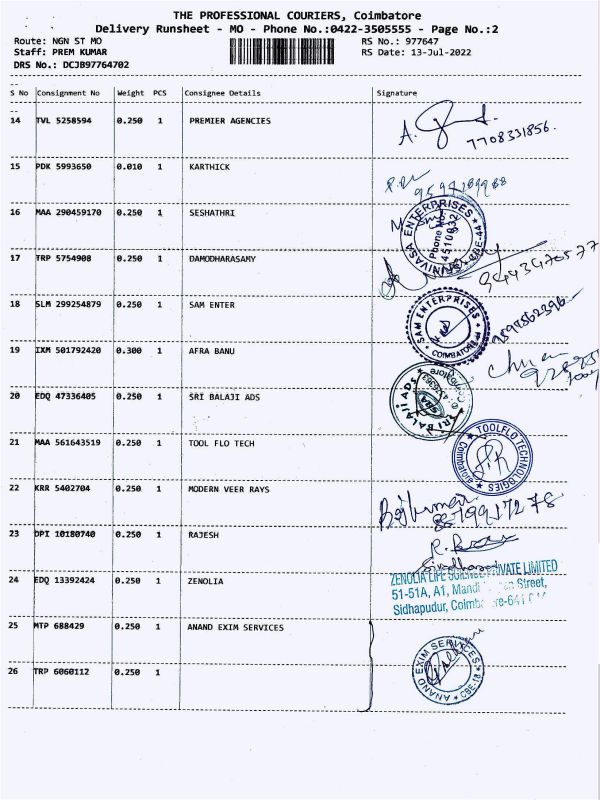 THE PROFESSIONAL COURIERS, Coimbatore
Delivery Runsheet - MO - Phone No.:0422-3505555 - Page No.:2
Route: NGN ST MO RS No.: 977647
Staff: PREM KUMAR RS Date: 13-Jul-2022
DRS No.: DCJB97764702
S No Consignment No Weight PCS Consignee Details Signature
14 TVL 5258594 0.250 1 PREMIER AGENCIES
7708331856.
15 PDK 5993650 0.010 1 KARTHICK
16 MAA 290459170 0.250 1 SESHATHRI
ENTERPRISES
Phone No.
4510832
17 TRP 5754908 0.250 1 DAMODHARASAMY
9443470577
18 SLM 299254879 0.250 1 SAM ENTER
SAM ENTERPRISES
COIMBATORE
19 IXM 501792420 0.300 1 AFRA BANU
20 EDQ 47336405 0.250 1 SRI BALAJI ADS
SRI BALAJI ADS
SBA
21 MAA 561643519 0.250 1 TOOL FLO TECH
TOOLFLO TECHNOLOGIES
Coimbatore
22 KRR 5402704 0.250 1 MODERN VEER RAYS
23 DPI 10180740 0.250 1 RAJESH
24 EDQ 13392424 0.250 1 ZENOLIA
ZENOLIA LIFE SCIENCE PRIVATE LIMITED
51-51A, A1, Street,
Sidhapudur,
25 MTP 688429 0.250 1 ANAND EXIM SERVICES
26 TRP 6060112 0.250 1
ANAND EXIM SERVICES
CBE-18